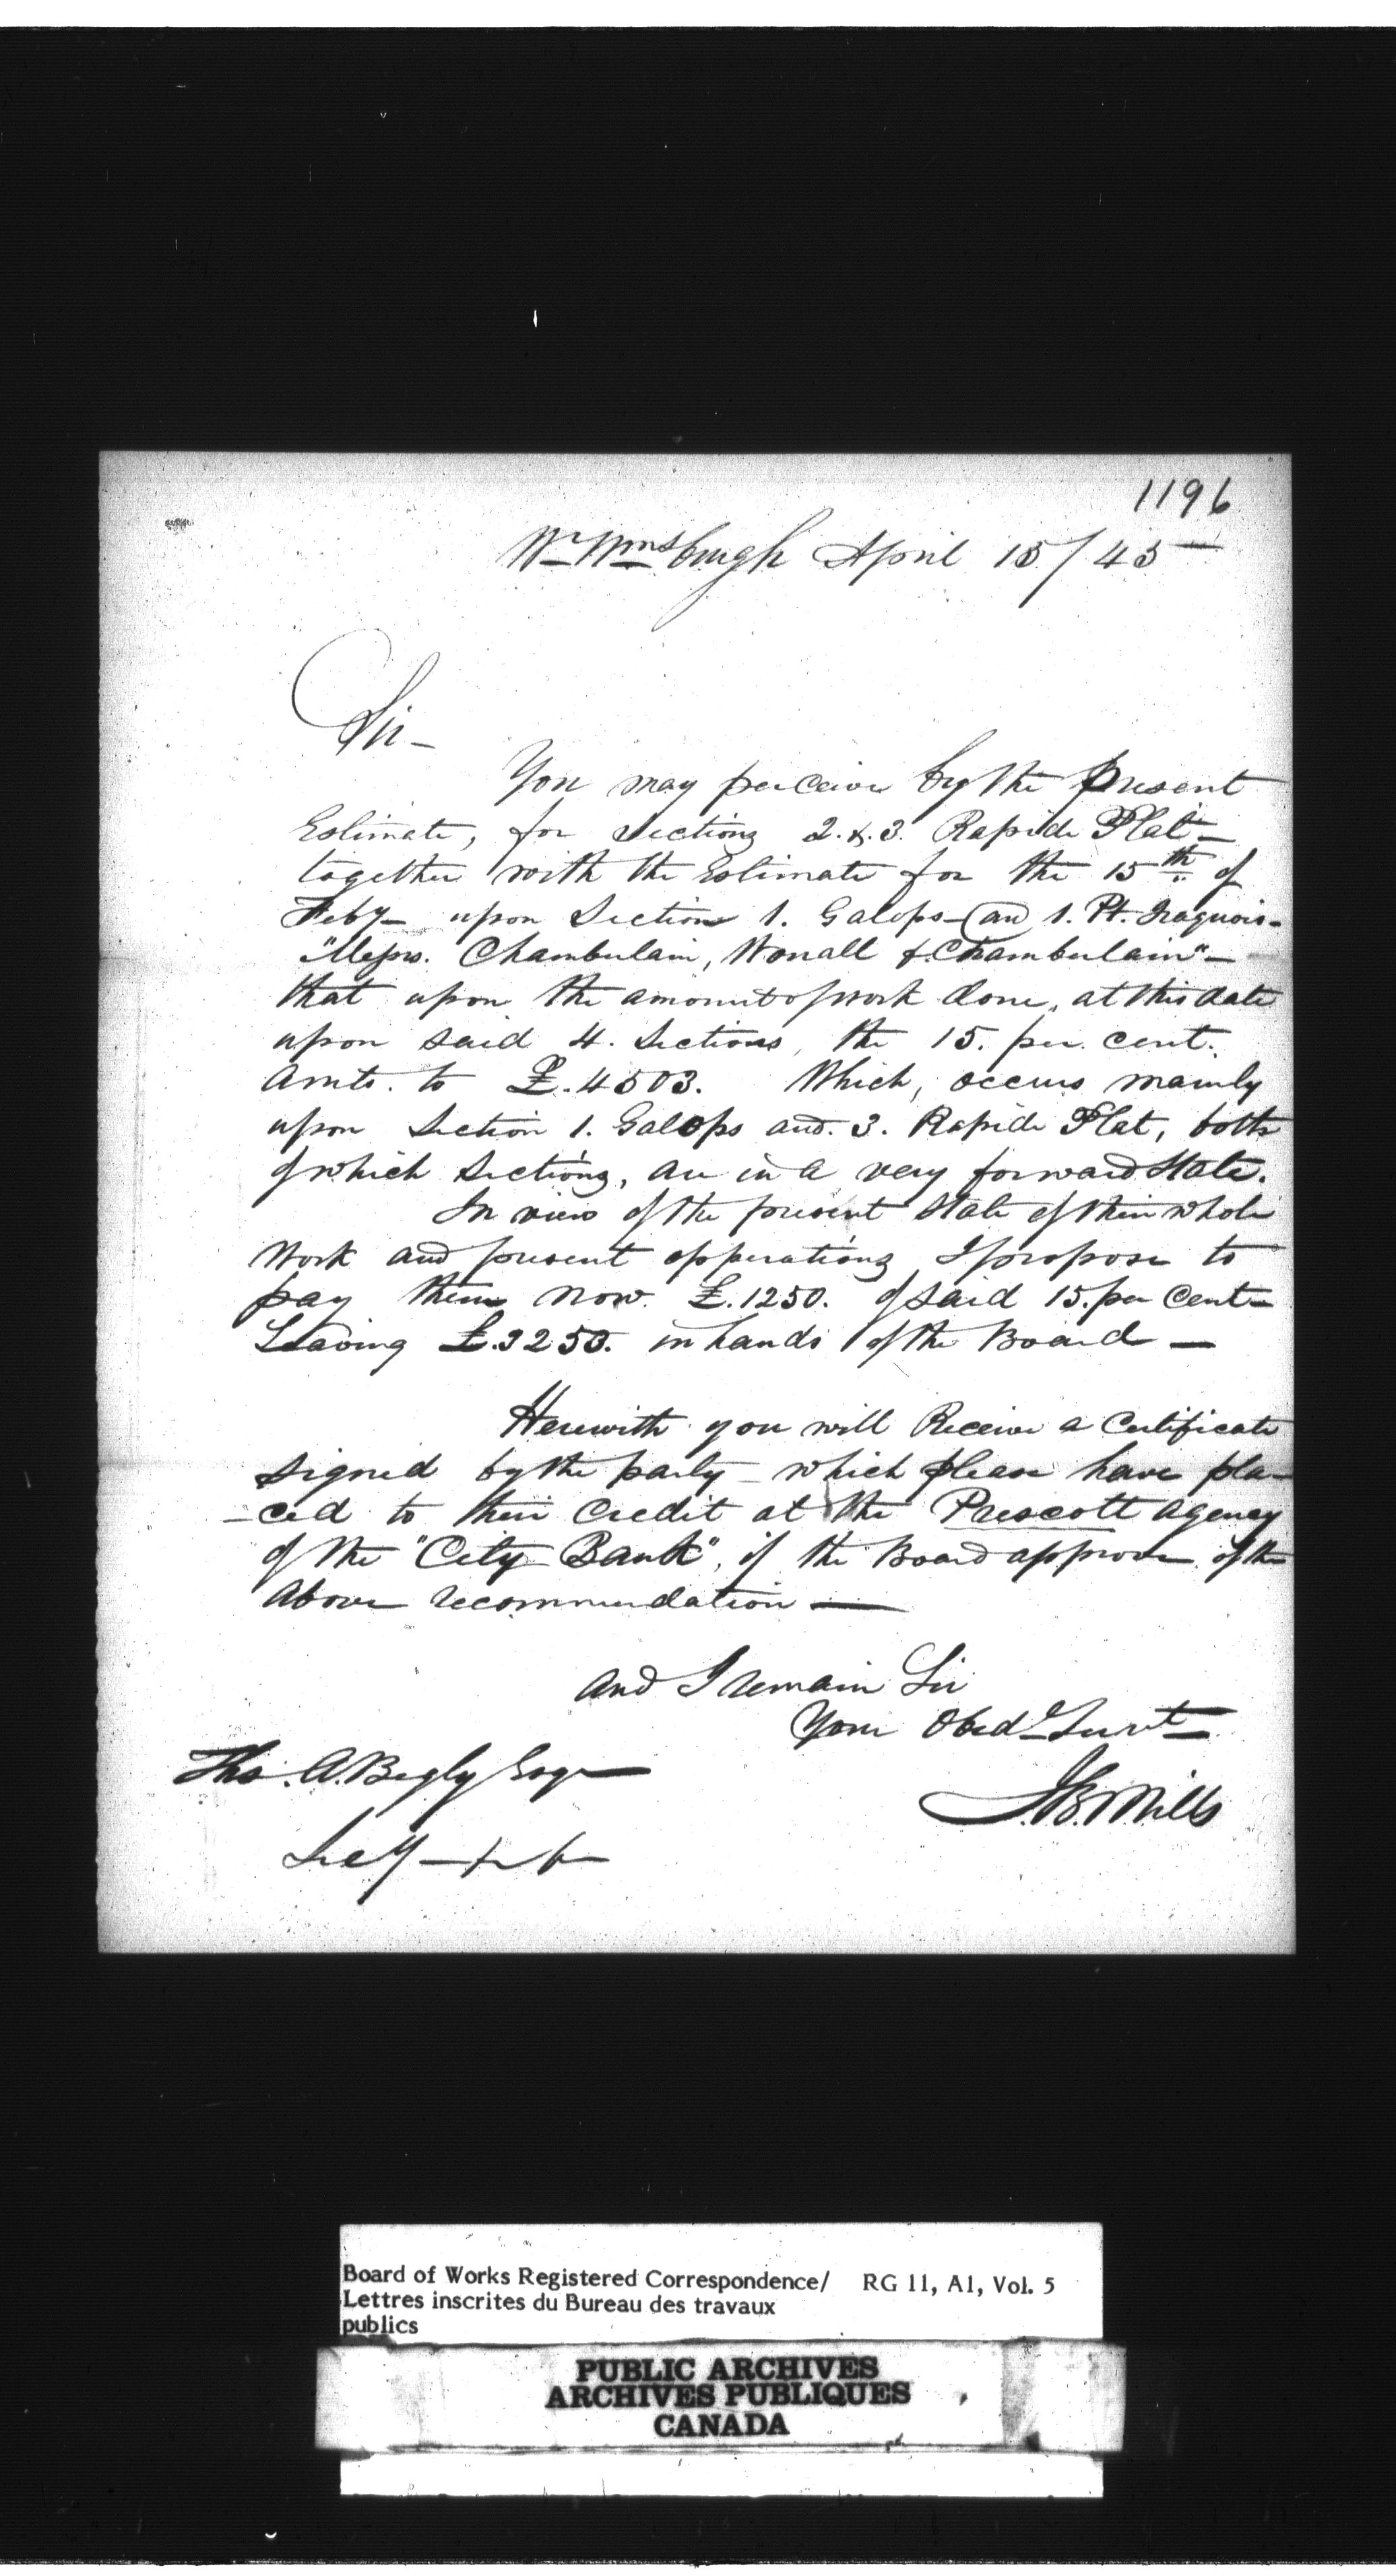 1196
Wmsburgh April 15/45
Sir -
You may perceive by the present
Estimate, for Sections 2. & 3. Rapide Plat -
together with the Estimate for the 15th of
Feby - upon Section 1. Galops - and 1. Pt. Iraquois -
"Messrs. Chamberlain, Worrall & Chamberlain" -
that upon the amount of work done, at this date
upon said 4. Sections, the 15. per. cent.
Amts. to £.4503. Which, occurs mainly
upon Section 1. Galops and. 3. Rapide Plat, both
of which Sections, are in a very forward State.
In view of the present State of their whole
Work and present opperations I propose to
pay them now. £.1250. of said 15. per Cent -
Leaving £.3250. in hands of the Board -
Herewith you will Receive a Certificate
signed by the party - which please have pla-
-ced to their Credit at the Prescott agency
of the "City Bank", if the Board approve of the
above recommendation -
and I remain Sir
Your Obedt Servt
J.B. Mills
Tho. A. Begly Esqr
Secy
Board of Works Registered Correspondence/ RG 11, A1, Vol. 5
Lettres inscrites du Bureau des travaux
publics
PUBLIC ARCHIVES
ARCHIVES PUBLIQUES
CANADA